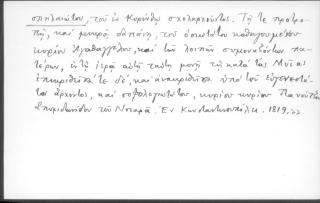 σπηλαιώτου, τοῦ ἐν Κορίνθῳ σχολαρχοῦντος. Τῇ τε προτρο-
πῇ, καὶ μικρᾷ δαπάνῃ, τοῦ ὁσιωτάτου καθηγουμένου
κυρίου Ἀγαθαγγέλου, καὶ τῶν λοιπῶν συμμοναζόντων πα-
τέρων, ἐν τῇ ἱερᾷ αὐτῇ ταύτῃ μονῇ τῇ κατὰ τὰς
ἐπιδιορθωθεῖσά τε δέ, καὶ ὑπὸ τοῦ εὐγενεστά-
του ἄρχοντος, καὶ σοφολογιωτάτου, κυρίου κυρίου
Σπυριδωνίδου τοῦ Νοταρᾶ. Ἐν Κωνσταντινουπόλει. 1819.